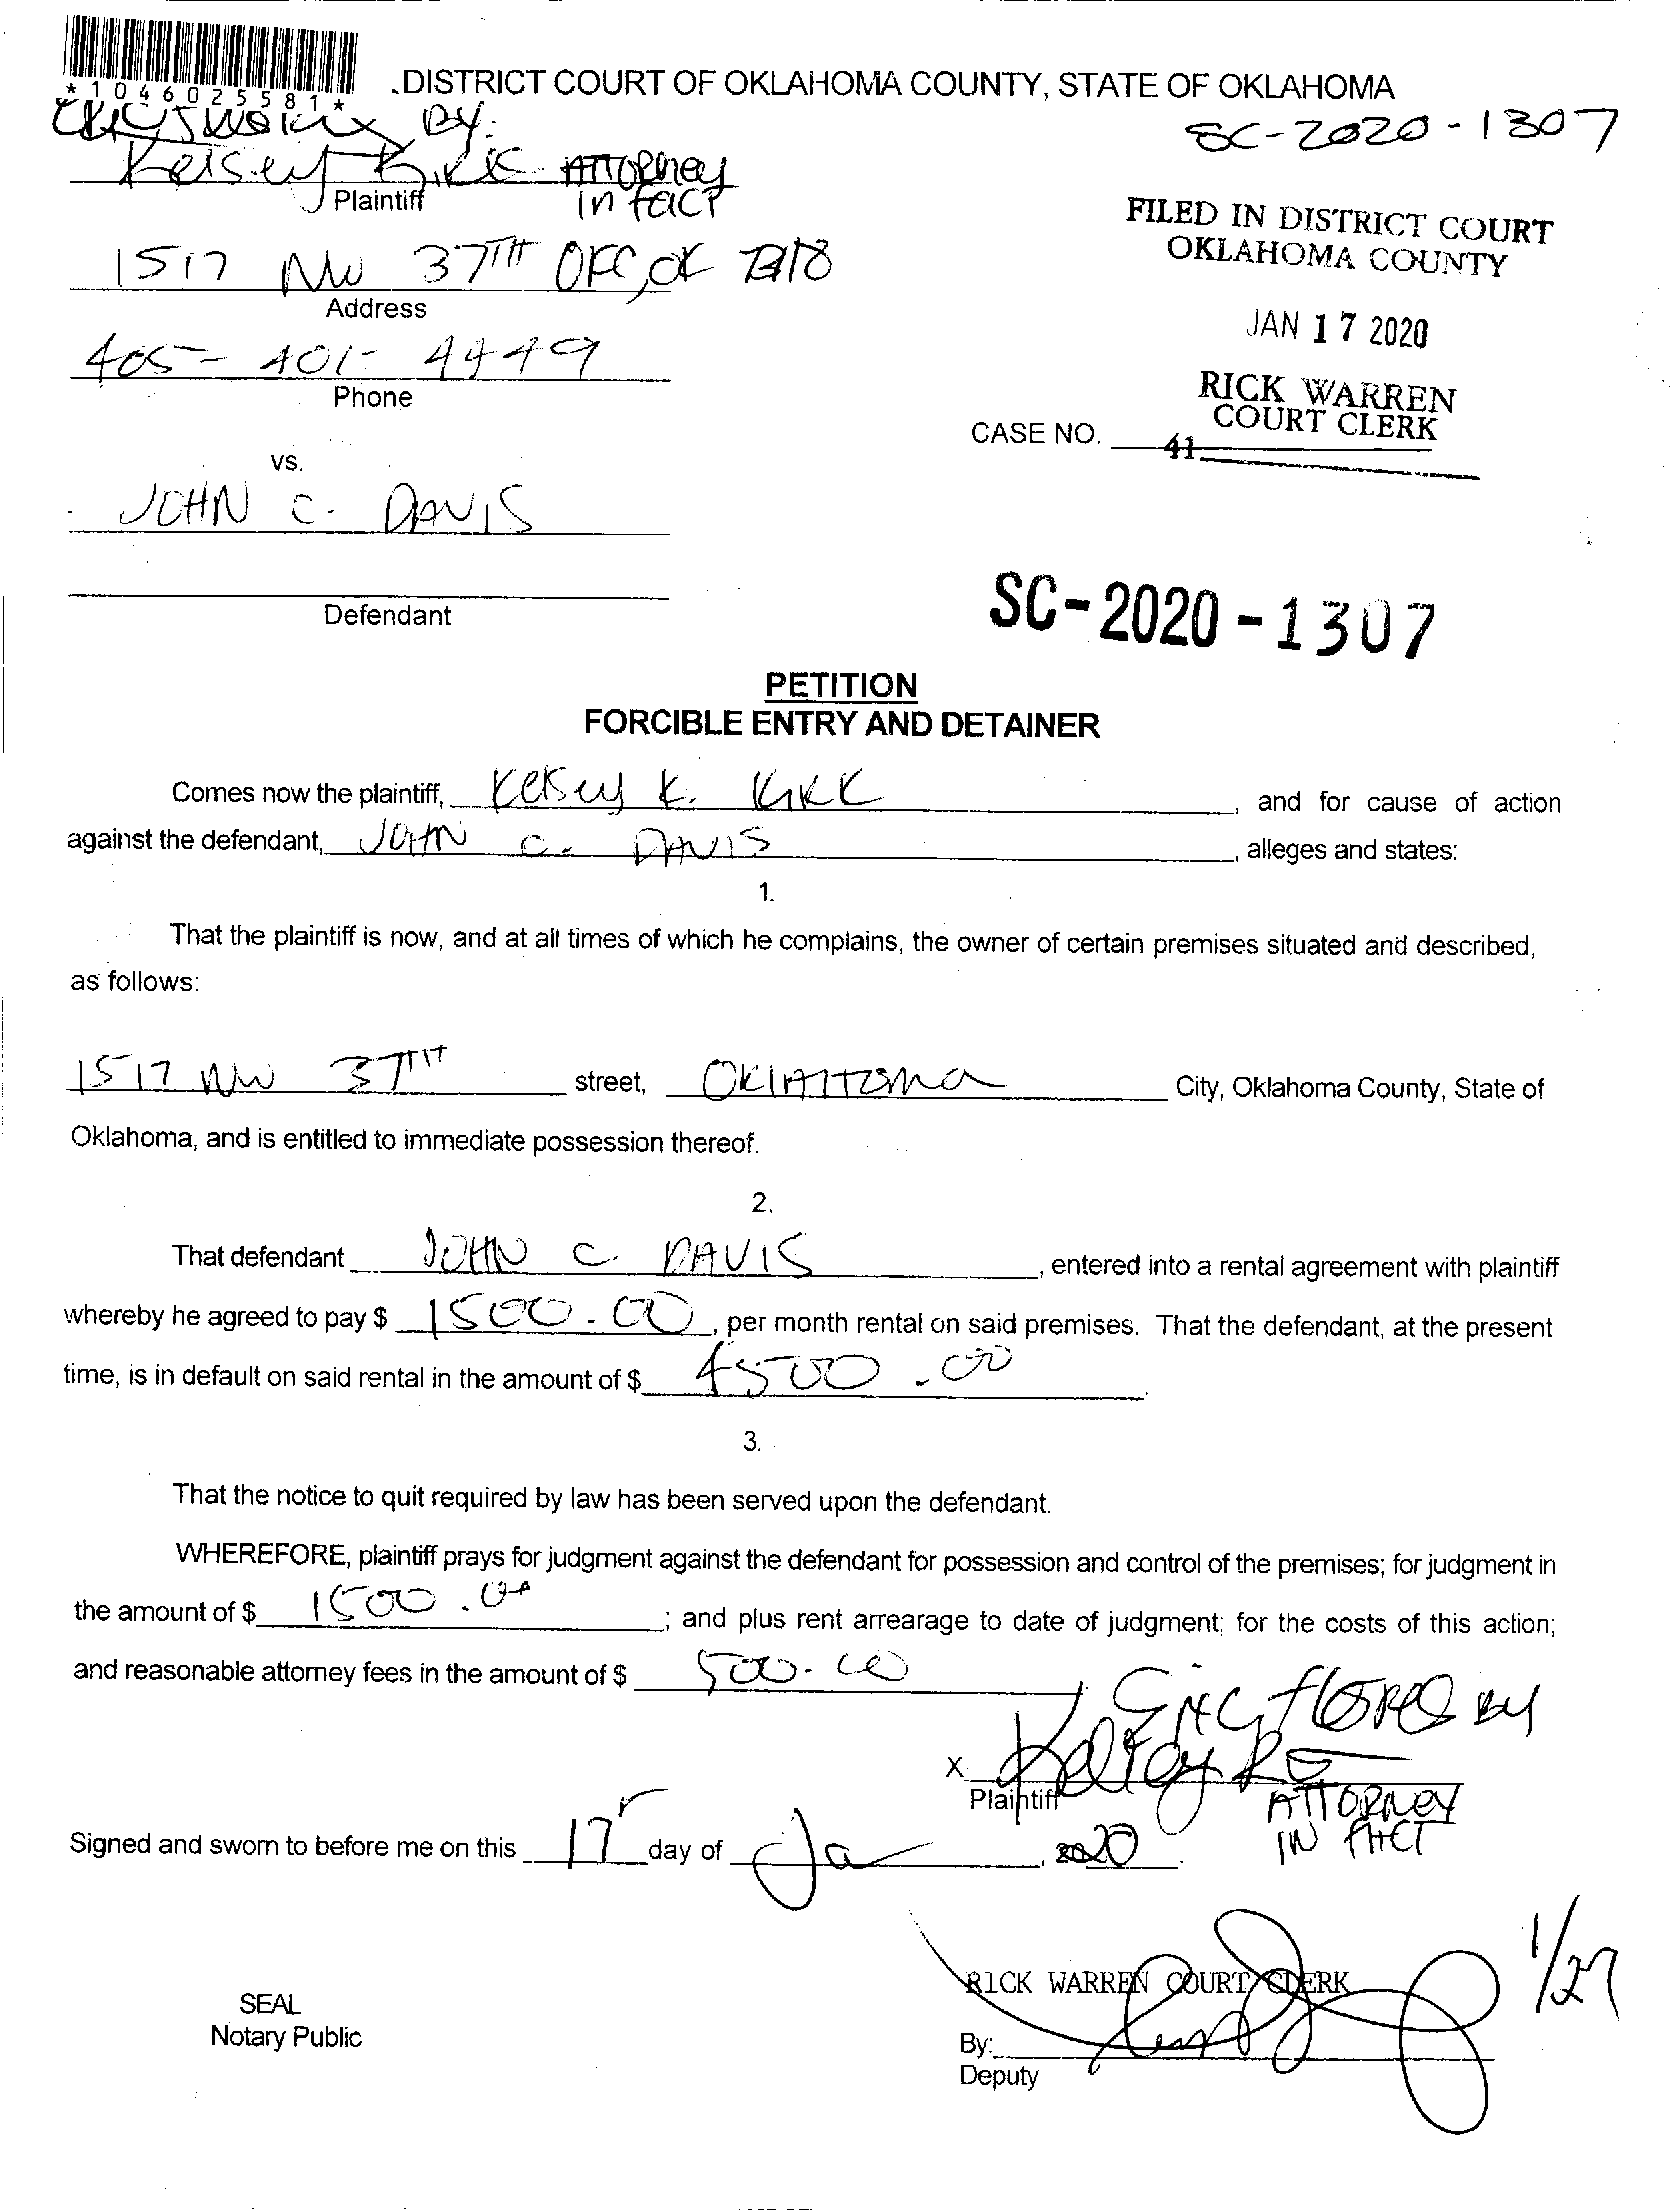 *1046025581*
.DISTRICT COURT OF OKLAHOMA COUNTY, STATE OF OKLAHOMA
SC-2020-1307
By:
Kelsey Kirk Attorney
in fact
Plaintiff
1517 NW 37TH OKC, OK
Address
405-401-4449
Phone
FILED IN DISTRICT COURT
OKLAHOMA COUNTY
JAN 17 2020
RICK WARREN
COURT CLERK
CASE NO.
41
vs.
JOHN C. DAVIS
Defendant
SC-2020-1307
PETITION
FORCIBLE ENTRY AND DETAINER
Comes now the plaintiff, Kelsey K. Kirk, and for cause of action
against the defendant, JOHN C. DAVIS, alleges and states:
1.
That the plaintiff is now, and at all times of which he complains, the owner of certain premises situated and described,
as follows:
1517 NW 37TH street, OKlAHOMA City, Oklahoma County, State of
Oklahoma, and is entitled to immediate possession thereof.
2.
That defendant JOHN C. DAVIS, entered into a rental agreement with plaintiff
whereby he agreed to pay $ 1500.00, per month rental on said premises. That the defendant, at the present
time, is in default on said rental in the amount of $ 4500.00
3.
That the notice to quit required by law has been served upon the defendant.
WHEREFORE, plaintiff prays for judgment against the defendant for possession and control of the premises; for judgment in
the amount of $ 1500.00; and plus rent arrearage to date of judgment; for the costs of this action;
and reasonable attorney fees in the amount of $ 500.00
Flores By
X
Plaintiff
ATTORNEY
IN FACT
Signed and sworn to before me on this 17 day of Ja, 2020.
1/27
RICK WARREN COURT CLERK
SEAL
Notary Public
By:
Deputy